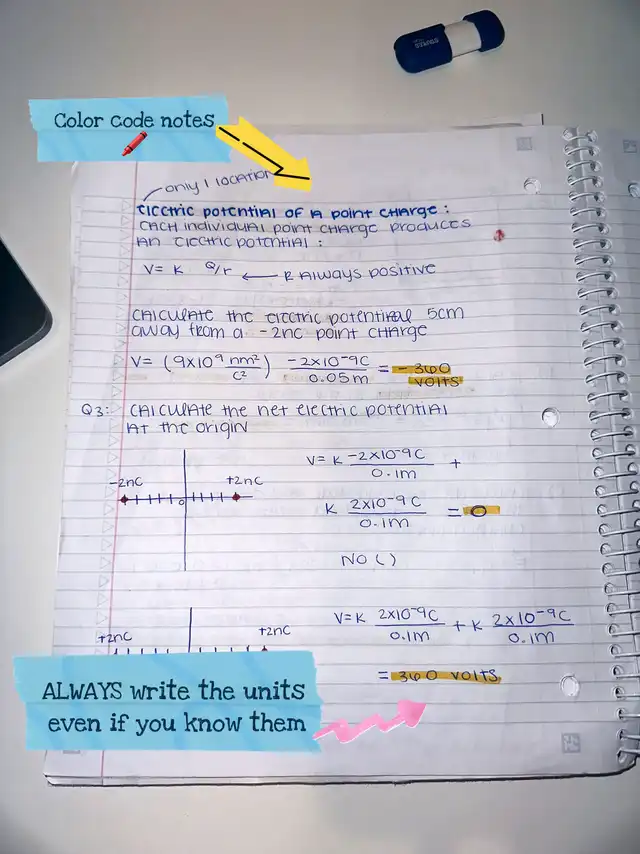 STAPLES
Color code notes
only 1 location
Electric potential of a point charge:
Each individual point charge produces
an electric potential:
V= K Q/r ← R always positive
Calculate the electric potential 5cm
away from a -2nc point charge
V= (9x10^9 nm²/C²) -2x10^-9C/0.05m = -360 volts
Q3: Calculate the net electric potential
at the origin
V= K -2x10^-9C/0.1m +
K 2x10^-9C/0.1m = 0
-2nC +2nC
0
NO ( )
V=K 2x10^-9C/0.1m + K 2x10^-9C/0.1m
+2nC +2nC
= 360 volts
ALWAYS write the units
even if you know them